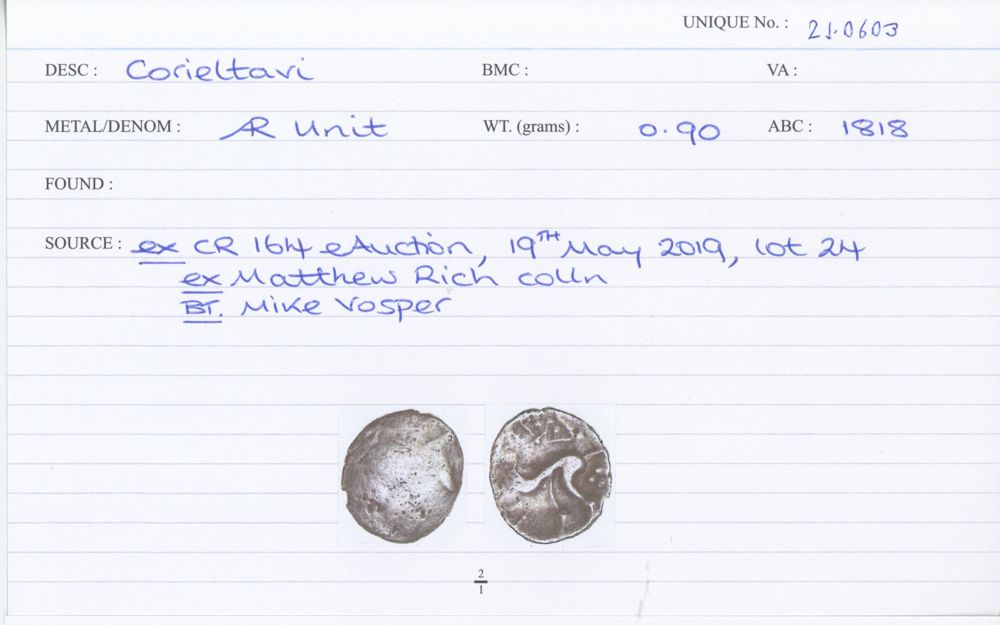 UNIQUE No. : 21.0603
DESC : Corieltavi BMC : VA :
METAL/DENOM : AR Unit WT. (grams) : 0.90 ABC : 1818
FOUND :
SOURCE : ex CR 164 eAuction, 19TH May 2019, lot 24
ex Matthew Rich colln
BT. Mike Vosper
2
1